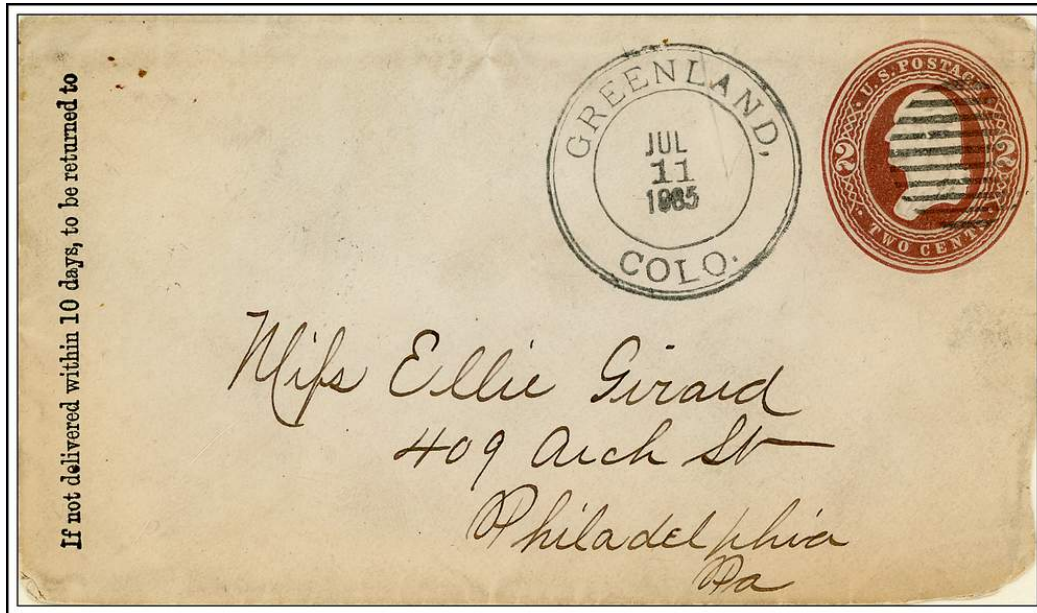 If not delivered within 10 days, to be returned to
GREENLAND,
JUL
11
1985
COLO.
U.S. POSTAGE
2 2
TWO CENTS
Miſs Ellie Girard
409 Arch St
Philadelphia
Pa